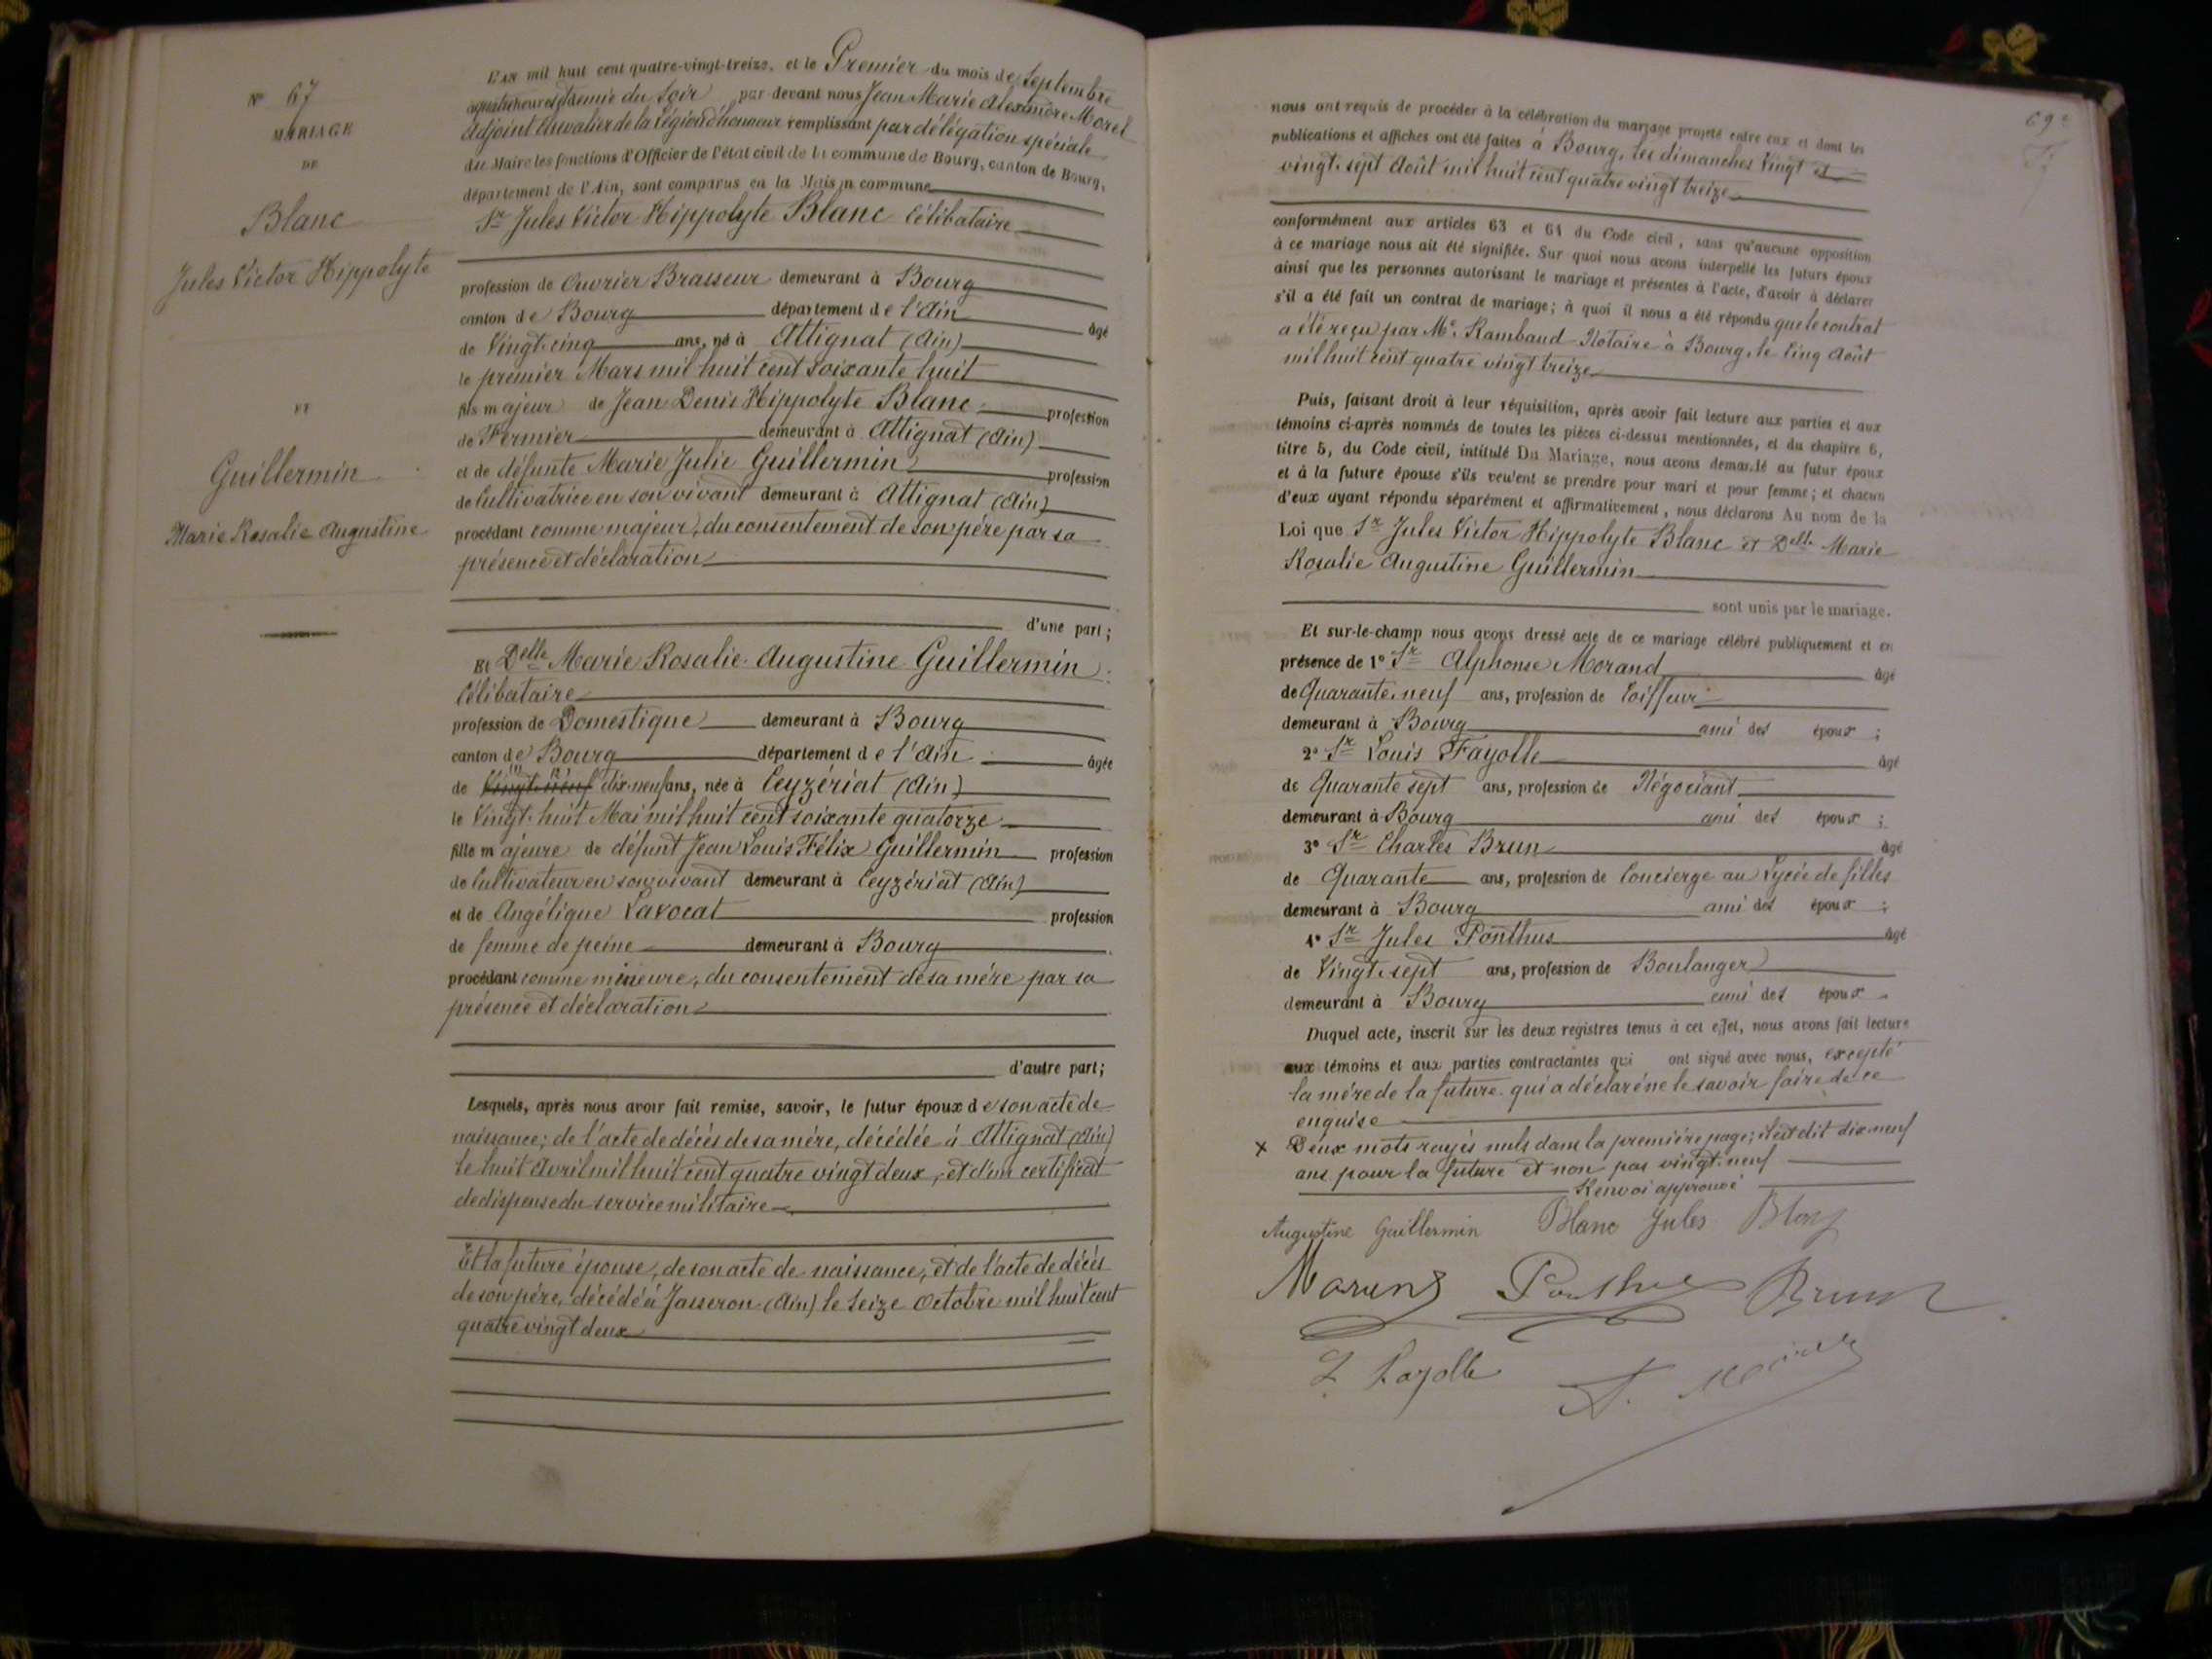 N° 67
MARIAGE
DE
Blanc
Jules Victor Hippolyte
ET
Guillermin
Marie Rosalie Augustine
L'AN mil huit cent quatre-vingt-treize, et le Premier du mois de Septembre
à quatre heures et demie du Soir par devant nous Jean Marie Alexandre Morel
Adjoint Chevalier de la Légion d'honneur remplissant par délégation spéciale
du Maire les fonctions d'Officier de l'état civil de la commune de Bourg, canton de Bourg,
département de l'Ain, sont comparus en la Maison commune
Sr Jules Victor Hippolyte Blanc Célibataire
profession de Ouvrier Brasseur demeurant à Bourg
canton de Bourg département de l'Ain âgé
de Vingt-cinq ans, né à Attignat (Ain)
le premier Mars mil huit cent soixante huit
fils majeur de Jean Denis Hippolyte Blanc profession
de Fermier demeurant à Attignat (Ain)
et de défunte Marie Julie Guillermin profession
de Cultivatrice en son vivant demeurant à Attignat (Ain)
procédant comme majeur, du consentement de son père par sa
présence et déclaration
d'une part;
Et Delle Marie Rosalie Augustine Guillermin
Célibataire
profession de Domestique demeurant à Bourg
canton de Bourg département de l'Ain âgée
de Vingt-neuf dix-neuf ans, née à Ceyzériat (Ain)
le Vingt-huit Mai mil huit cent soixante quatorze
fille majeure de défunt Jean Louis Félix Guillermin profession
de Cultivateur en son vivant demeurant à Ceyzériat (Ain)
et de Angélique Lavocat profession
de femme de peine demeurant à Bourg
procédant comme mineure, du consentement de sa mère par sa
présence et déclaration
d'autre part;
Lesquels, après nous avoir fait remise, savoir, le futur époux de son acte de
naissance; de l'acte de décès de sa mère, décédée à Attignat (Ain)
le huit Avril mil huit cent quatre vingt deux, et d'un certificat
de dispense du service militaire
Et la future épouse, de son acte de naissance, et de l'acte de décès
de son père, décédé à Jasseron (Ain) le Seize Octobre mil huit cent
quatre vingt deux
69e
nous ont requis de procéder à la célébration du mariage projeté entre eux et dont les
publications et affiches ont été faites à Bourg, les dimanches Vingt et
vingt-sept Août mil huit cent quatre vingt treize
conformément aux articles 63 et 64 du Code civil, sans qu'aucune opposition
à ce mariage nous ait été signifiée. Sur quoi nous avons interpellé les futurs époux
ainsi que les personnes autorisant le mariage et présentes à l'acte, d'avoir à déclarer
s'il a été fait un contrat de mariage; à quoi il nous a été répondu que le contrat
a été reçu par Me Rambaud Notaire à Bourg, le Cinq Août
mil huit cent quatre vingt treize
Puis, faisant droit à leur réquisition, après avoir fait lecture aux parties et aux
témoins ci-après nommés de toutes les pièces ci-dessus mentionnées, et du chapitre 6,
titre 5, du Code civil, intitulé Du Mariage, nous avons demandé au futur époux
et à la future épouse s'ils veulent se prendre pour mari et pour femme; et chacun
d'eux ayant répondu séparément et affirmativement, nous déclarons Au nom de la
Loi que Sr Jules Victor Hippolyte Blanc et Delle Marie
Rosalie Augustine Guillermin
sont unis par le mariage.
Et sur-le-champ nous avons dressé acte de ce mariage célébré publiquement et en
présence de 1° Sr Alphonse Morand âgé
de Quarante-neuf ans, profession de Coiffeur
demeurant à Bourg ami des époux ;
2° Sr Louis Fayolle âgé
de Quarante sept ans, profession de Négociant
demeurant à Bourg ami des époux ;
3° Sr Charles Brun âgé
de Quarante ans, profession de Concierge au Lycée de filles
demeurant à Bourg ami des époux ;
4° Sr Jules Ponthus âgé
de Vingt-sept ans, profession de Boulanger
demeurant à Bourg ami des époux
Duquel acte, inscrit sur les deux registres tenus à cet effet, nous avons fait lecture
aux témoins et aux parties contractantes qui ont signé avec nous, excepté
la mère de la future qui a déclaré ne le savoir faire de ce
enquise
x Deux mots rayés nuls dans la première page; il est dit dix-neuf
ans pour la future et non pas vingt-neuf
Renvoi approuvé
Augustine Guillermin Blanc Jules Blanc
Morand Ponthus Brun
L Fayolle A. Morel